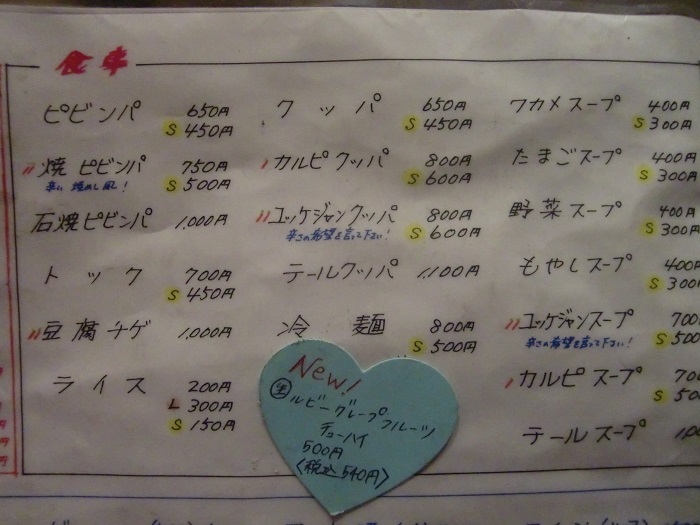 食事
ピビンパ 650円
S 450円
〃焼ピビンパ 750円
辛い焼めし風! S 500円
石焼ピビンパ 1,000円
トック 700円
S 450円
〃豆腐チゲ 1,000円
ライス 200円
L 300円
S 150円
クッパ 650円
S 450円
カルビクッパ 800円
S 600円
〃ユッケジャンクッパ 800円
辛さの希望を言って下さい! S 600円
テールクッパ 1,100円
冷麺 800円
S 500円
ワカメスープ 400円
S 300円
たまごスープ 400円
S 300円
野菜スープ 400円
S 300円
もやしスープ 400円
S 300
〃ユッケジャンスープ 700
辛さの希望を言って下さい! S 500
カルビスープ 700
S 50
テールスープ
New!
生ルビーグレープフルーツ
チューハイ
500円
〈税込540円〉